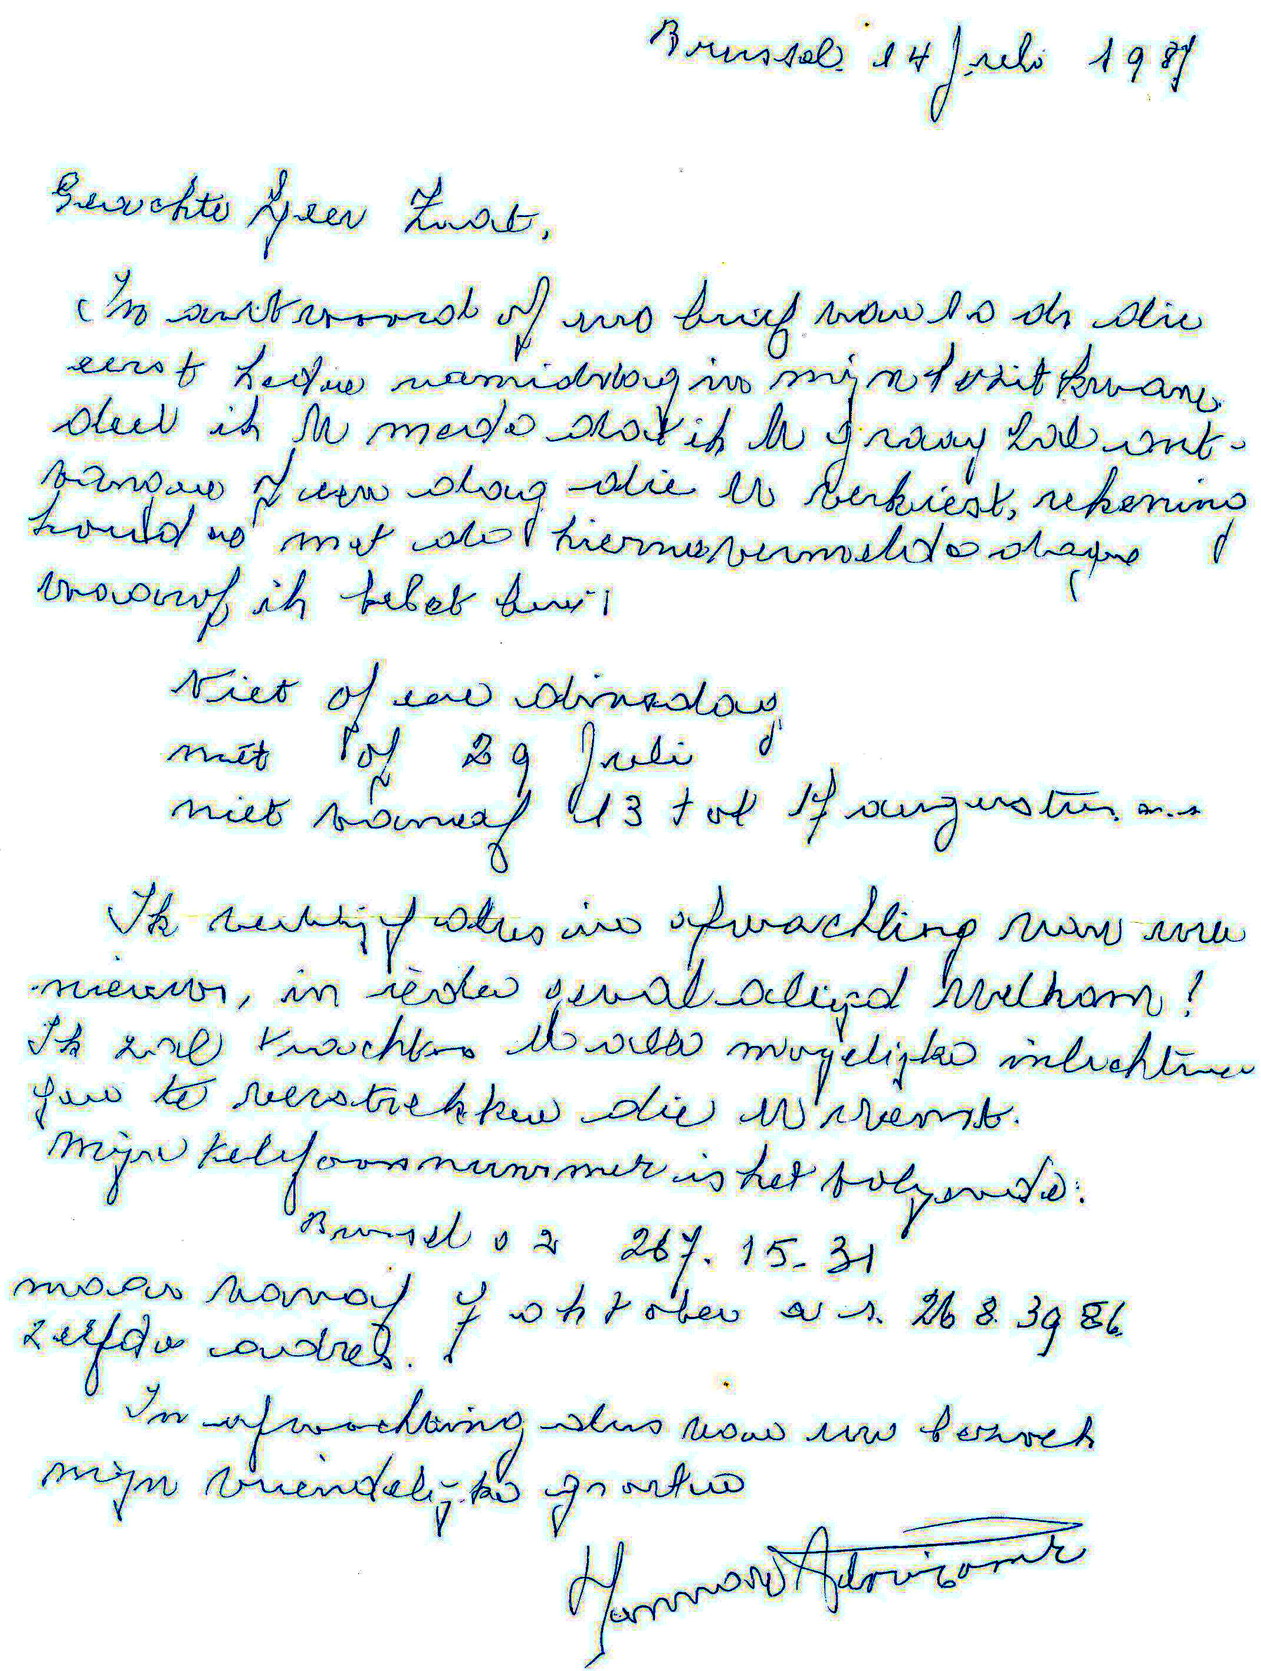 Brussel 14 Juli 1987
Geachte Heer Zwart,
In antwoord op uw brief van 10 dr die
eerst heden namiddag in mijn bezit kwam
deel ik U mede dat ik U graag zal ont-
vangen op een dag die U verkiest, rekening
houdend met de hiernavermelde dagen
waarop ik belet ben:
Niet op een dinsdag
niet op 29 Juli
niet vanaf 13 tot 17 augustus a.s.
Ik verblijf dus in afwachting van uw
nieuws, in ieder geval altijd welkom!
Ik zal trachten U alle mogelijke inlichtin
gen te verstrekken die U wenst.
Mijn telefoonnummer is het volgende:
Brussel 02 267.15.31
maar vanaf 7 oktober a.s. 268.39 86
zelfde adres.
In afwachting dus van uw bezoek
mijn vriendelijke groeten